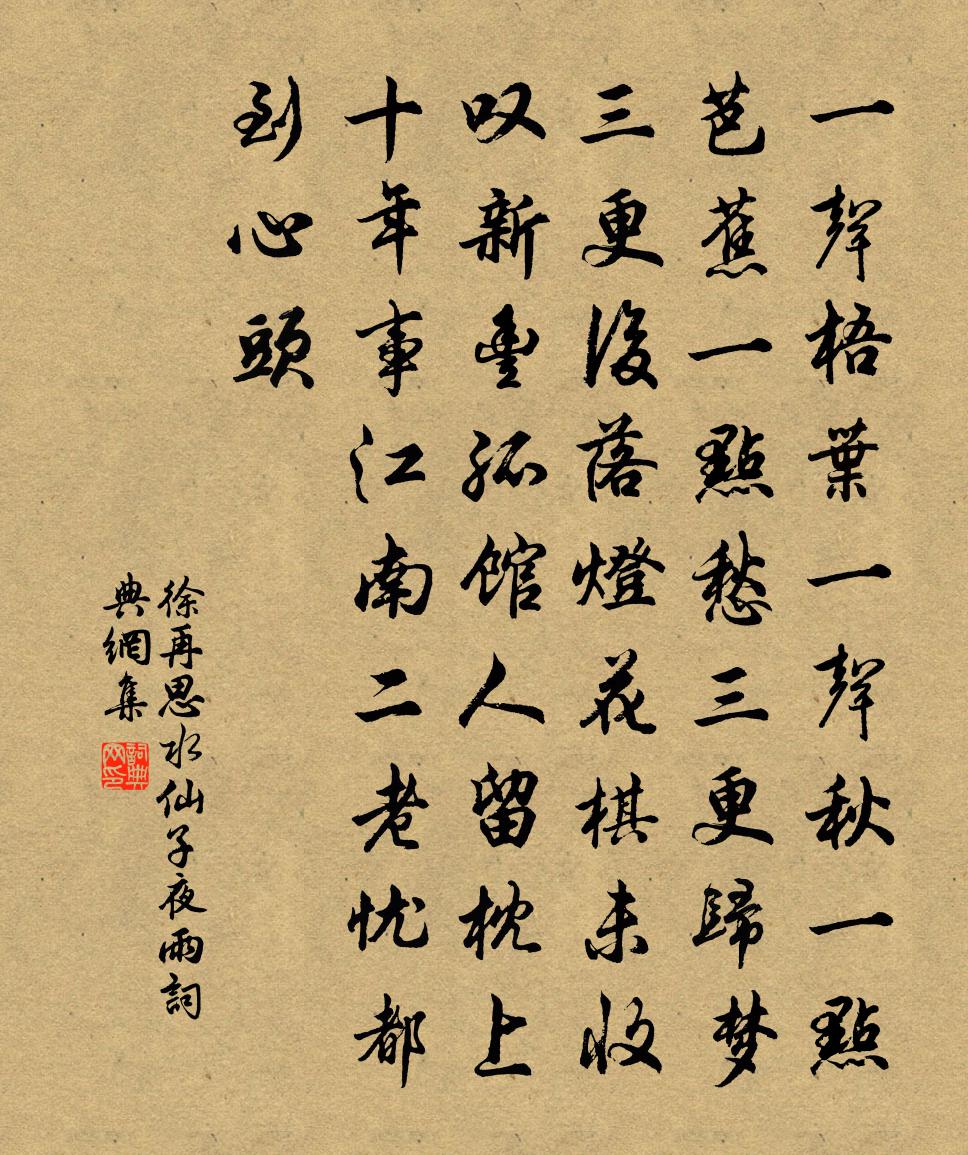 一聲梧葉一聲秋一點
芭蕉一點愁三更歸梦
三更後落燈花棋未收
叹新豐孤館人留枕上
十年事江南二老忧都
到心頭
徐再思水仙子夜雨詞
典網集
詞典网印